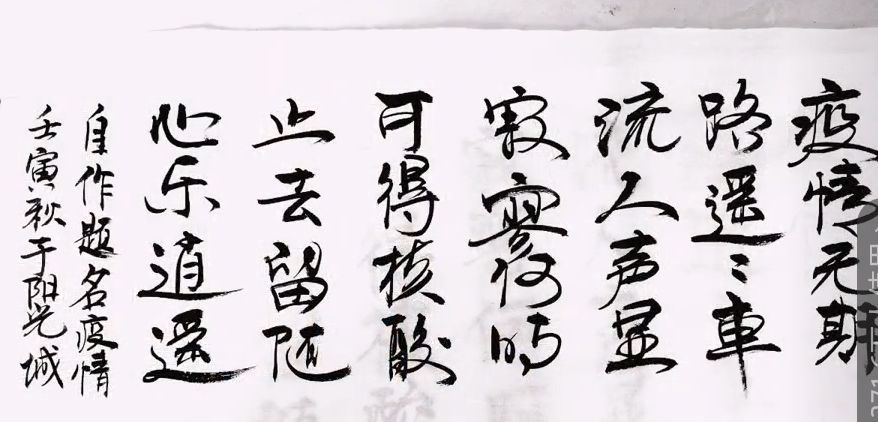 疫情无期
路遥〻車
流人声显
寂寥何时
可得核酸
止去留随
心乐逍遥
自作题名疫情
壬寅秋于阳光城